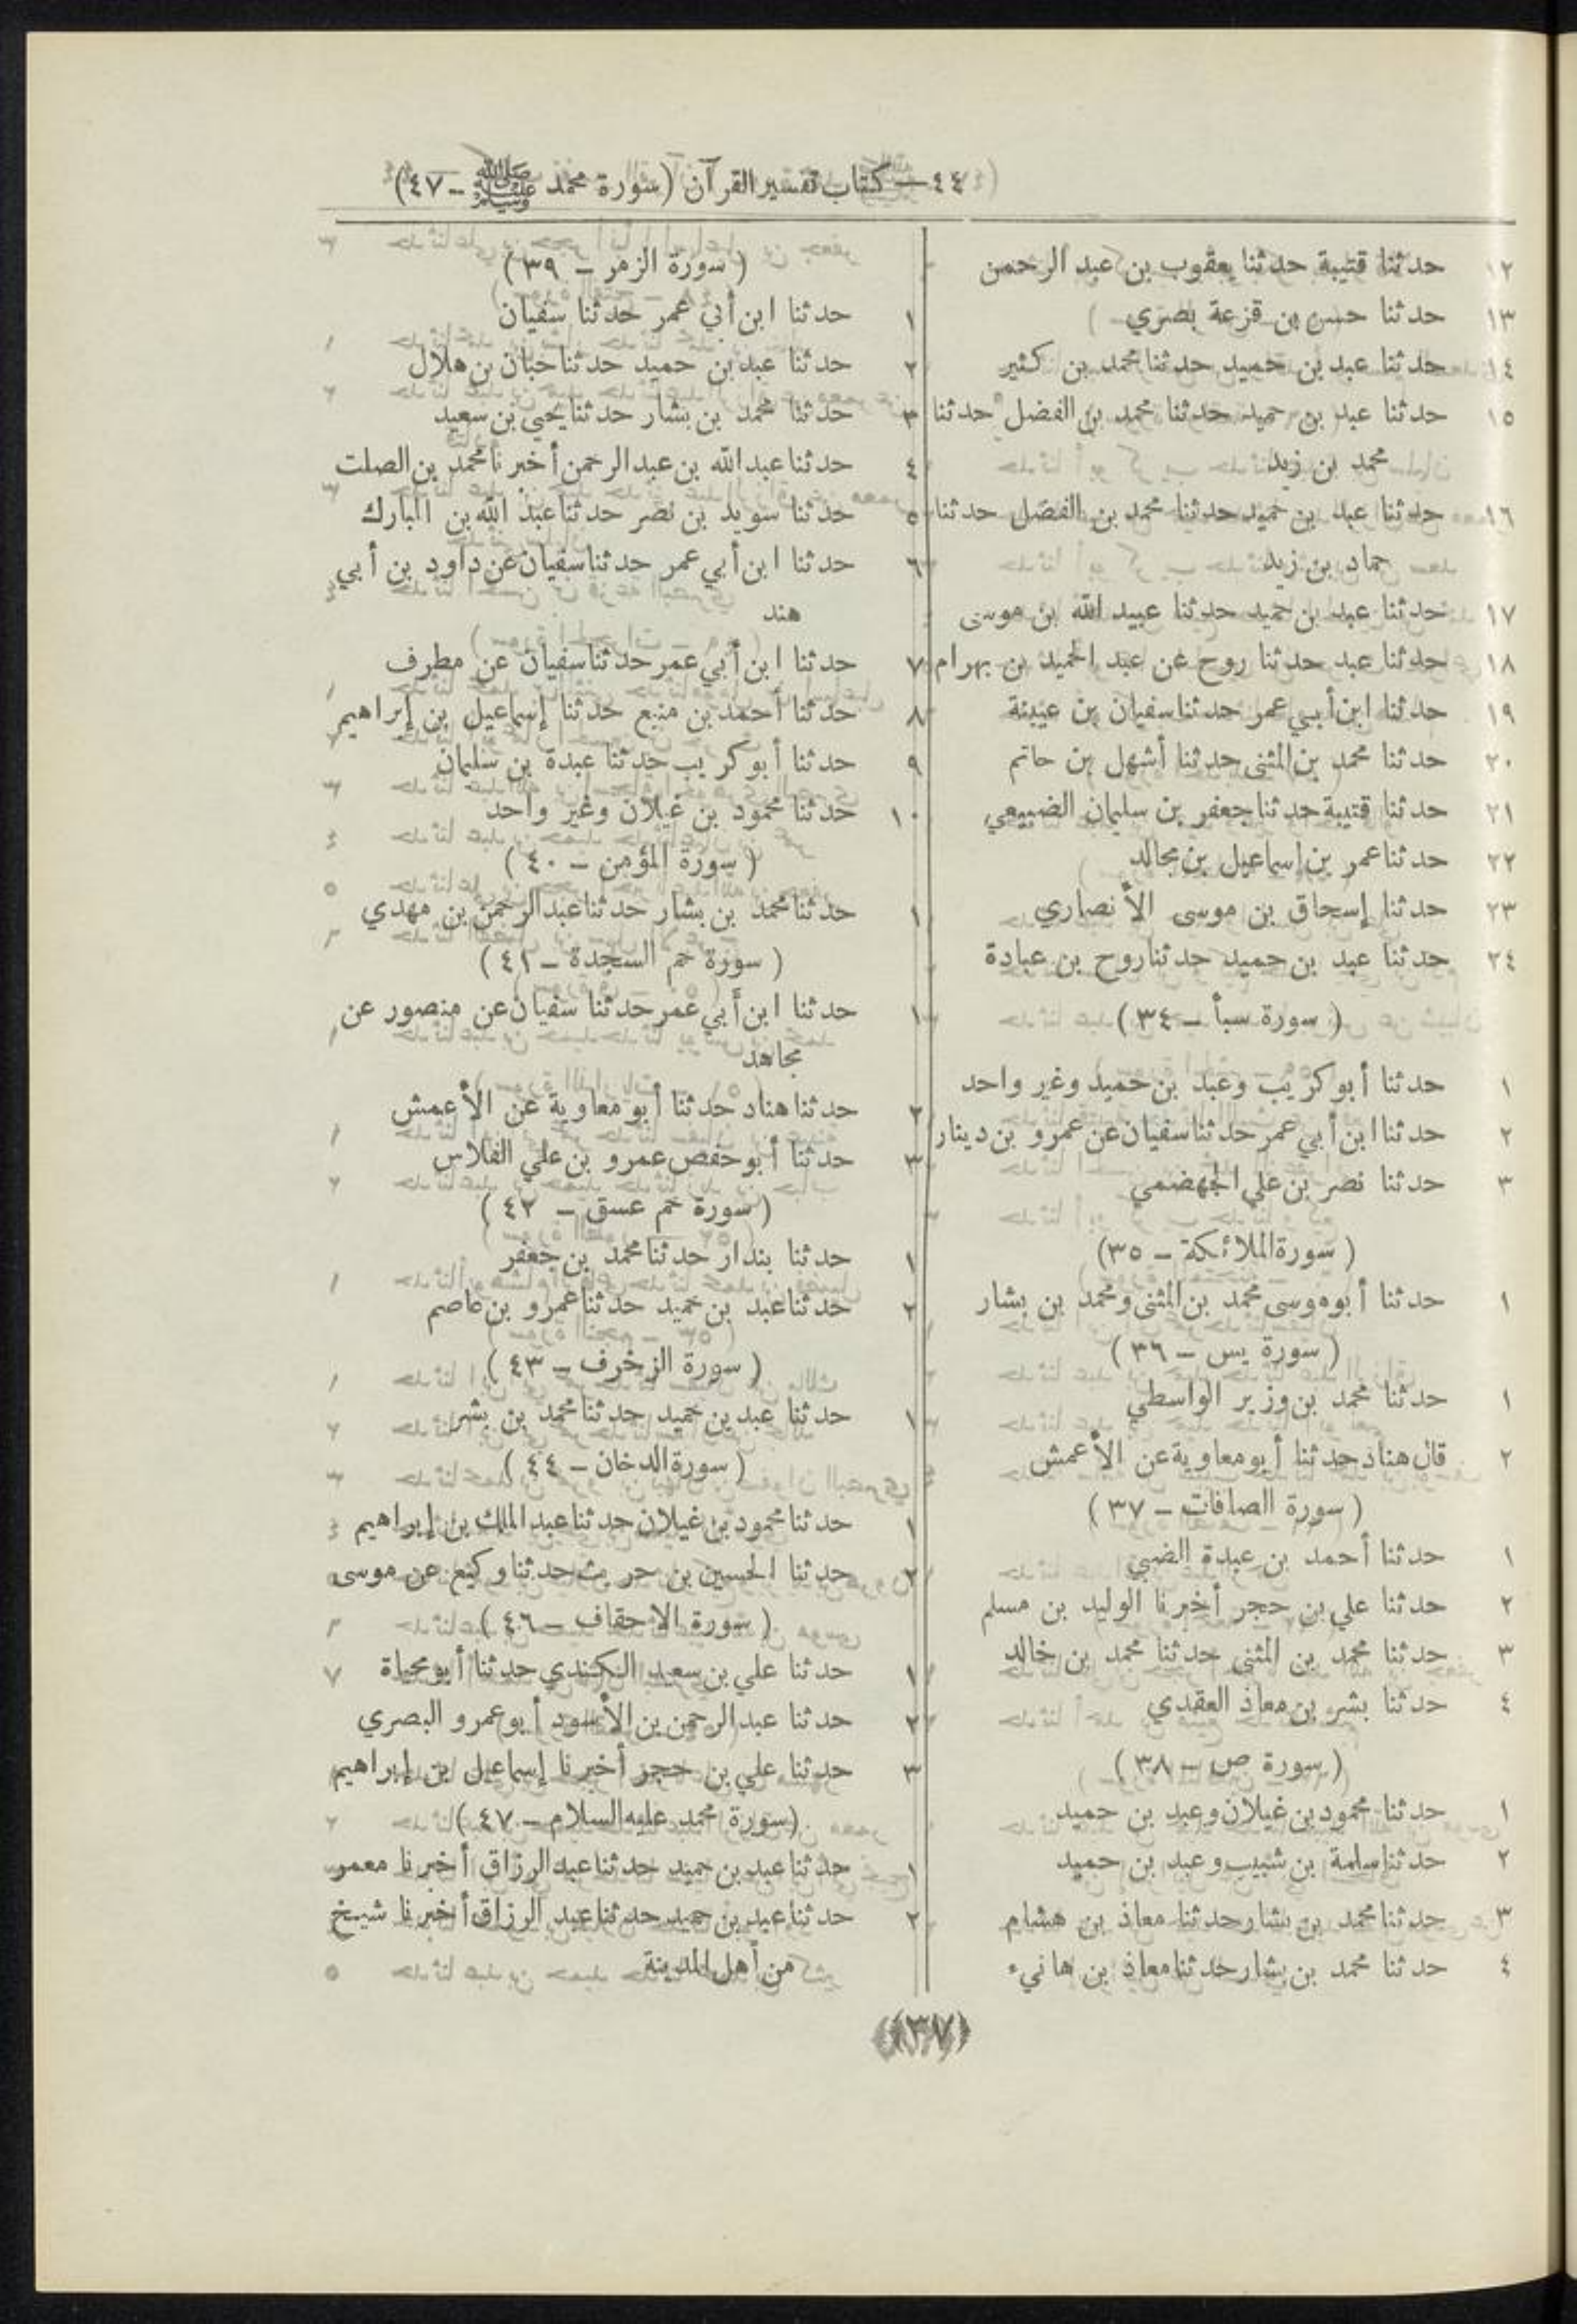 ٤٤ — كتاب تفسير القرآن (سورة محمد ﷺ - ٤٧)
١٢ حدثنا قتيبة حدثنا يعقوب بن عبد الرحمن
١٣ حدثنا حسن بن قزعة بصري
١٤ حدثنا عبد بن حميد حدثنا محمد بن كثير
١٥ حدثنا عبد بن حميد حدثنا محمد بن الفضل حدثنا
محمد بن زيد
١٦ حدثنا عبد بن حميد حدثنا محمد بن الفضل حدثنا
حماد بن زيد
١٧ حدثنا عبد بن حميد حدثنا عبيد الله بن موسى
١٨ حدثنا عبد حدثنا روح عن عبد الحميد بن بهرام
١٩ حدثنا ابن أبي عمر حدثنا سفيان بن عيينة
٢٠ حدثنا محمد بن المثنى حدثنا أشهل بن حاتم
٢١ حدثنا قتيبة حدثنا جعفر بن سليمان الضبيعي
٢٢ حدثنا عمر بن إسماعيل بن مجالد
٢٣ حدثنا إسحاق بن موسى الأنصاري
٢٤ حدثنا عبد بن حميد حدثنا روح بن عبادة
( سورة سبأ - ٣٤ )
١ حدثنا أبو كريب وعبد بن حميد وغير واحد
٢ حدثنا ابن أبي عمر حدثنا سفيان عن عمرو بن دينار
٣ حدثنا نصر بن علي الجهضمي
( سورة الملائكة - ٣٥)
١ حدثنا أبو موسى محمد بن المثنى ومحمد بن بشار
( سورة يس - ٣٦ )
١ حدثنا محمد بن وزير الواسطي
٢ قال هناد حدثنا أبو معاوية عن الأعمش
( سورة الصافات - ٣٧ )
١ حدثنا أحمد بن عبدة الضبي
٢ حدثنا علي بن حجر أخبرنا الوليد بن مسلم
٣ حدثنا محمد بن المثنى حدثنا محمد بن خالد
٤ حدثنا بشر بن معاذ العقدي
( سورة ص - ٣٨ )
١ حدثنا محمود بن غيلان وعبد بن حميد
٢ حدثنا سلمة بن شبيب وعبد بن حميد
٣ حدثنا محمد بن بشار حدثنا معاذ بن هشام
٤ حدثنا محمد بن بشار حدثنا معاذ بن هانيء
( سورة الزمر - ٣٩ )
١ حدثنا ابن أبي عمر حدثنا سفيان
٢ حدثنا عبد بن حميد حدثنا حبان بن هلال
٣ حدثنا محمد بن بشار حدثنا يحيى بن سعيد
٤ حدثنا عبد الله بن عبد الرحمن أخبرنا محمد بن الصلت
٥ حدثنا سويد بن نصر حدثنا عبد الله بن المبارك
٦ حدثنا ابن أبي عمر حدثنا سفيان عن داود بن أبي
هند
٧ حدثنا ابن أبي عمر حدثنا سفيان عن مطرف
٨ حدثنا أحمد بن منيع حدثنا إسماعيل بن إبراهيم
٩ حدثنا أبو كريب حدثنا عبدة بن سليمان
١٠ حدثنا محمود بن غيلان وغير واحد
( سورة المؤمن - ٤٠ )
١ حدثنا محمد بن بشار حدثنا عبد الرحمن بن مهدي
( سورة حم السجدة - ٤١ )
١ حدثنا ابن أبي عمر حدثنا سفيان عن منصور عن
مجاهد
٢ حدثنا هناد حدثنا أبو معاوية عن الأعمش
٣ حدثنا أبو حفص عمرو بن علي الفلاس
( سورة حم عسق - ٤٢ )
١ حدثنا بندار حدثنا محمد بن جعفر
٢ حدثنا عبد بن حميد حدثنا عمرو بن عاصم
( سورة الزخرف - ٤٣ )
١ حدثنا عبد بن حميد حدثنا محمد بن بشر
( سورة الدخان - ٤٤ )
١ حدثنا محمود بن غيلان حدثنا عبد الملك بن إبراهيم
٢ حدثنا الحسين بن حريث حدثنا وكيع عن موسى
( سورة الاحقاف - ٤٦ )
١ حدثنا علي بن سعيد الكندي حدثنا أبو محياة
٢ حدثنا عبد الرحمن بن الأسود أبو عمرو البصري
٣ حدثنا علي بن حجر أخبرنا إسماعيل بن إبراهيم
(سورة محمد عليه السلام - ٤٧ )
١ حدثنا عبد بن حميد حدثنا عبد الرزاق أخبرنا معمر
٢ حدثنا عبد بن حميد حدثنا عبد الرزاق أخبرنا شيخ
من أهل المدينة
(٣٧)